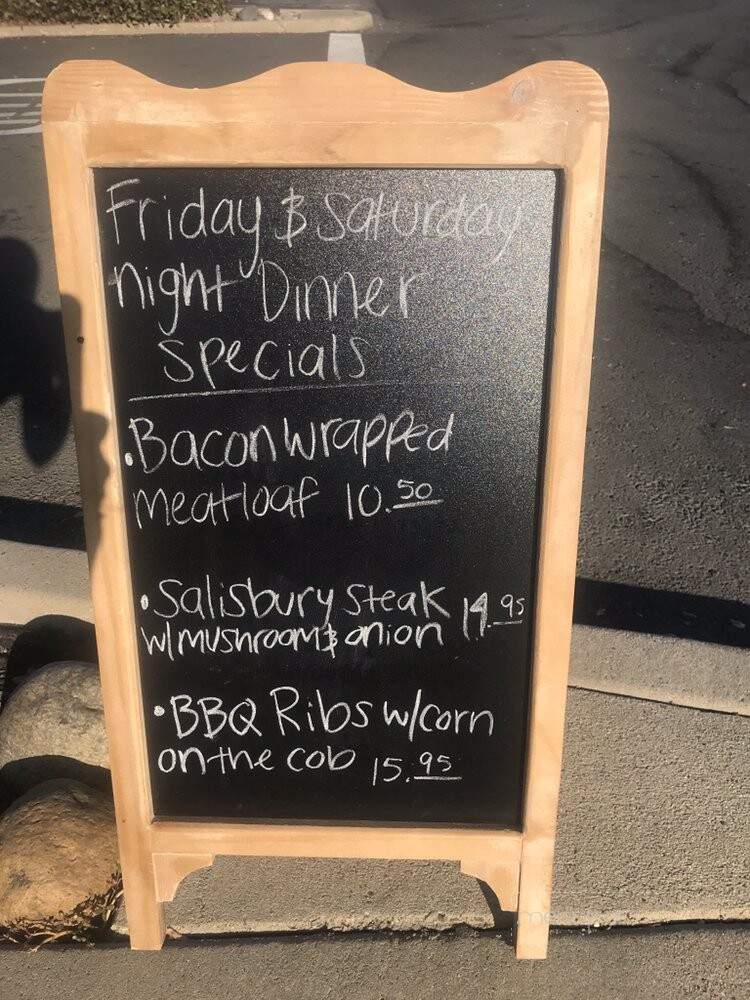 Friday & Saturday
night Dinner
specials
• Bacon wrapped
meatloaf 10.50
• Salisbury steak 14.95
w/ mushroom & onion
• BBQ Ribs w/corn
on the cob 15.95